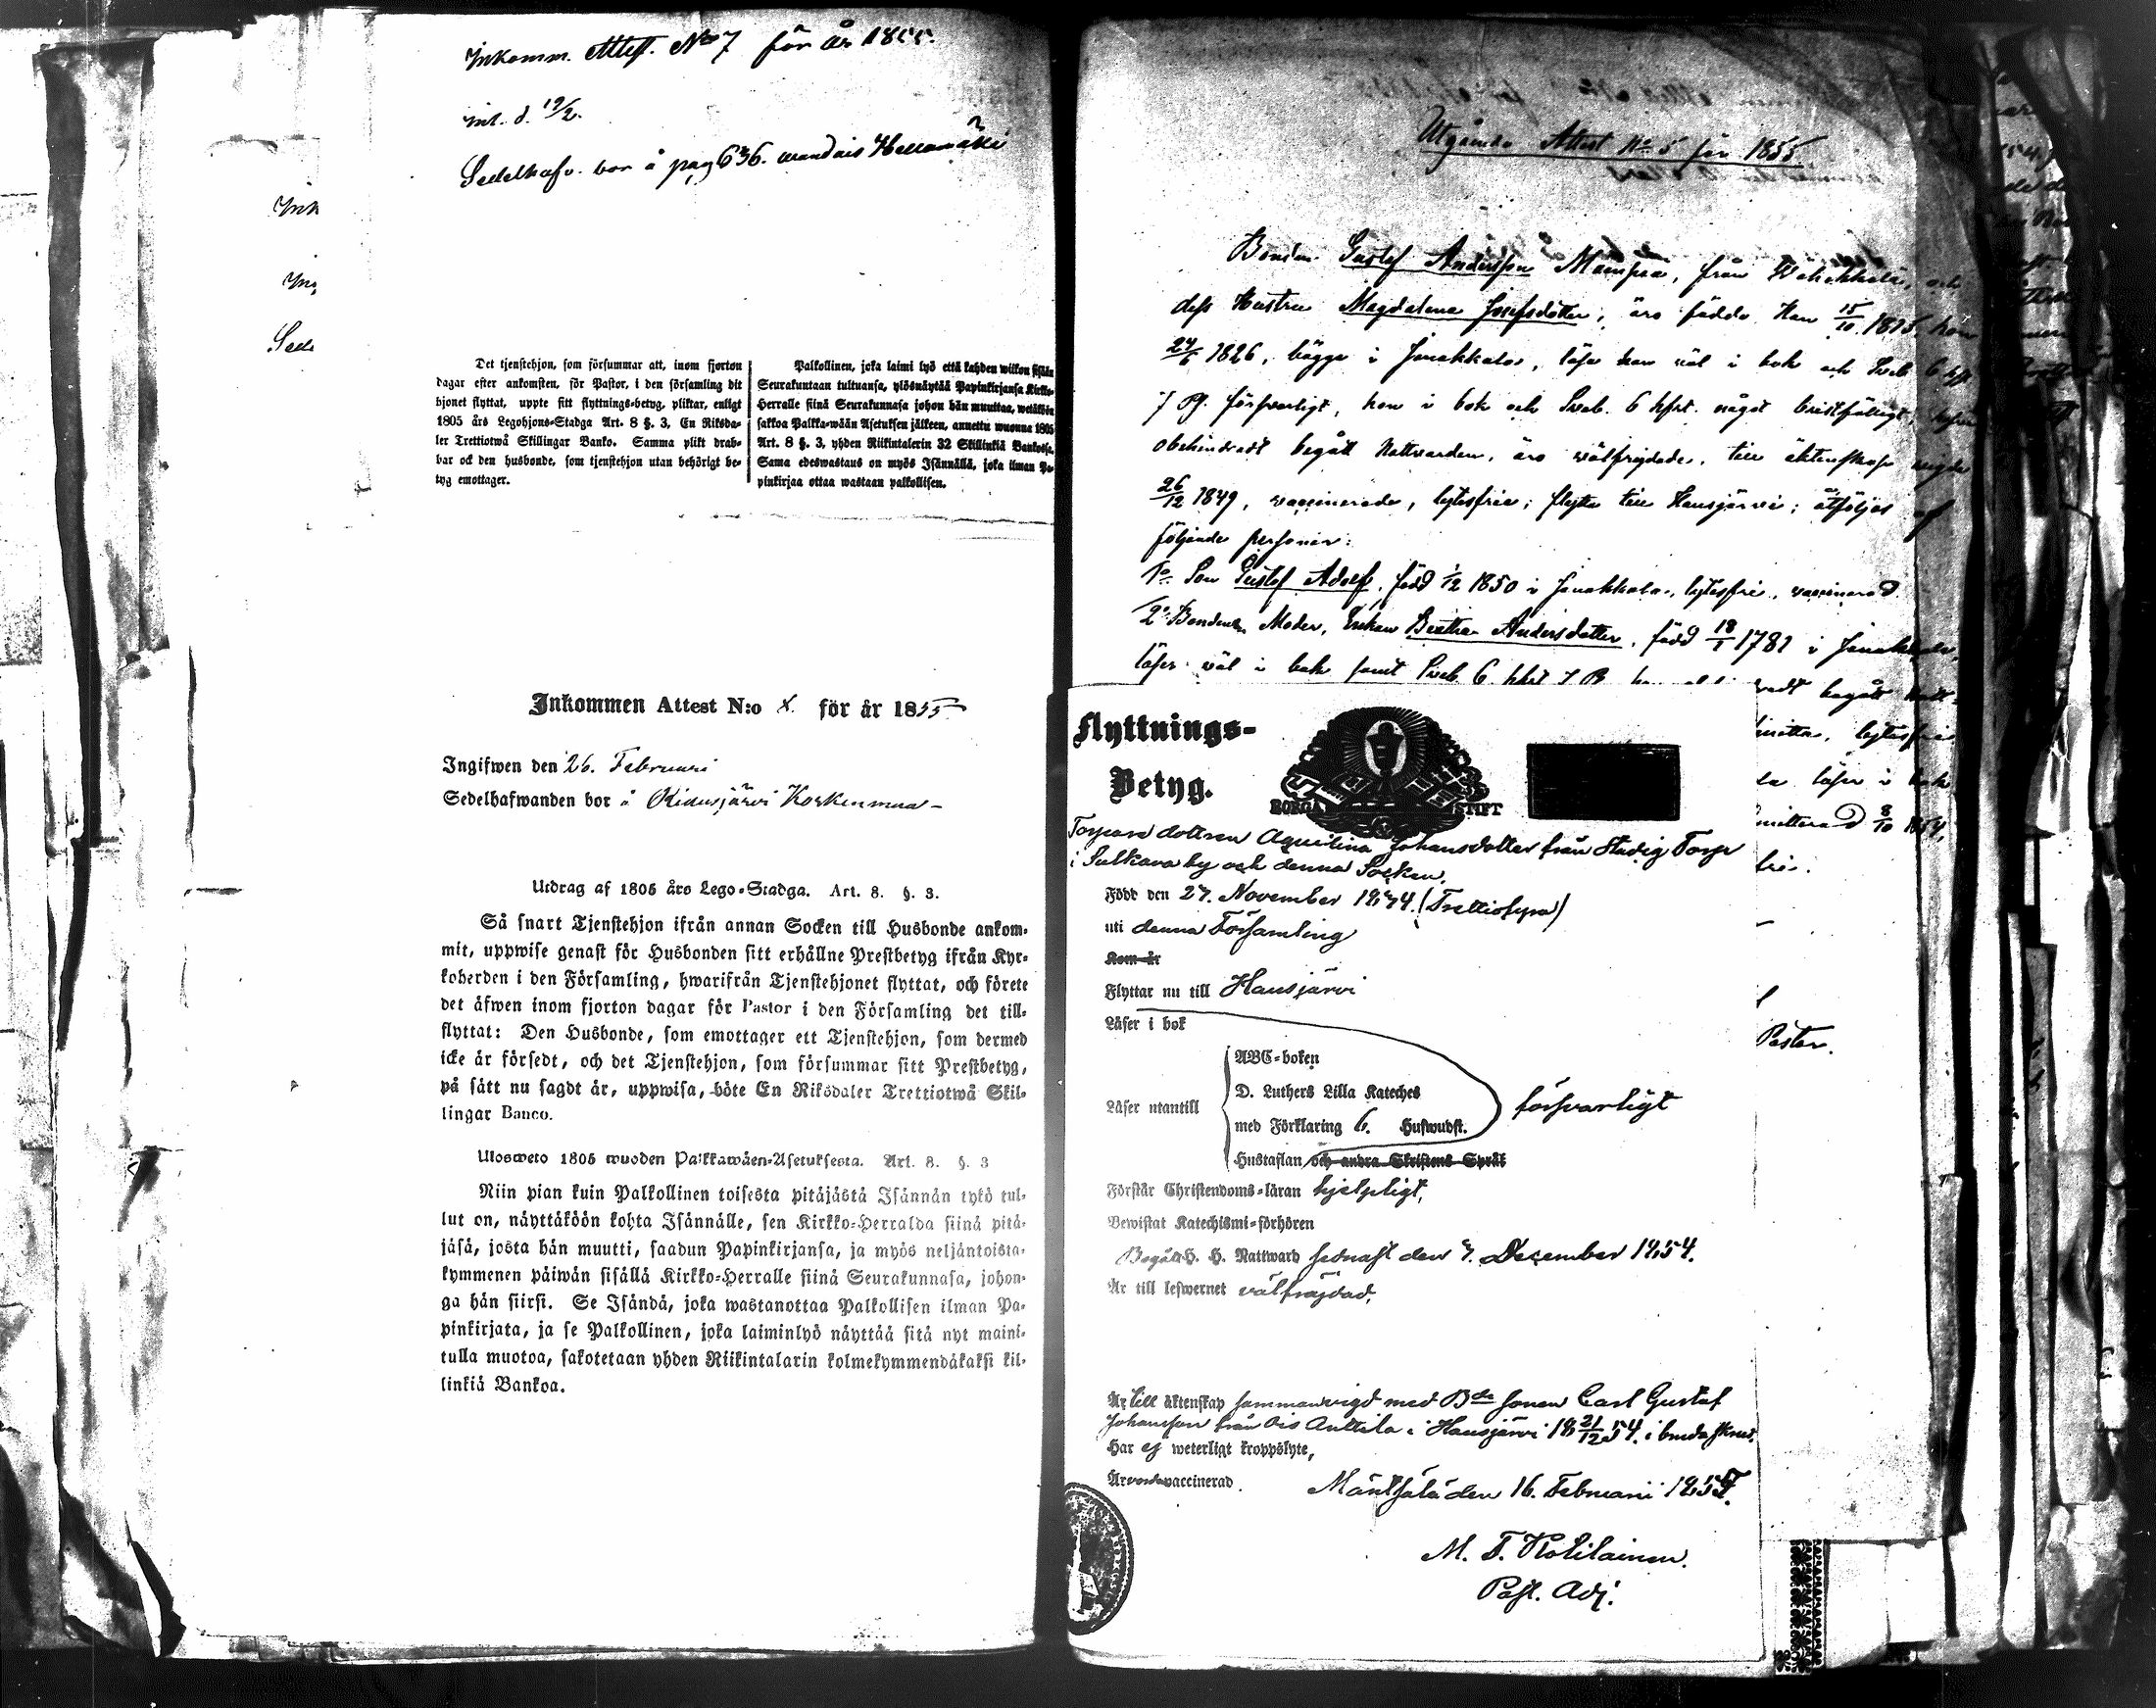 Inkomm. Attest. No 7 för år 1855.
inl. d. 19/2.
Sedelhafv. bor å pag 636.
Ink
Sede
Det tjenstehjon, som försummar att, inom fjorton
dagar efter ankomsten, för Pastor, i den församling dit
hjonet flyttat, uppte sitt flyttnings-betyg, pliktar, enligt
1805 års Legohjons-Stadga Art. 8 §. 3, En Riksda-
ler Trettiotwå Skillingar Banko. Samma plikt drab-
bar ock den husbonde, som tjenstehjon utan behörigt be-
tyg emottager.
Palkollinen, joka laimi lyö että kahden wiikon sisään
Seurakuntaan tultuansa, ylösnäyttää Papinkirjansa Kirkko-
Herralle siinä Seurakunnasa johon hän muuttaa, wetäköön
sakkoa Palkka-wään Asetuksen jälkeen, annettu wuonna 1805
Art. 8 §. 3, yhden Riikintalerin 32 Skillinkiä Bankosa.
Sama edeswastaus on myös Isännällä, joka ilman Pa-
pinkirjaa ottaa wastaan palkollisen.
Inkommen Attest N:o 8. för år 1855
Ingifwen den 26. Februari
Sedelhafwanden bor å Ridasjärvi Korkenmaa
Utdrag af 1805 års Lego-Stadga. Art. 8. §. 3.
Så snart Tjenstehjon ifrån annan Socken till Husbonde ankom-
mit, uppwise genast för Husbonden sitt erhållne Prestbetyg ifrån Kyr-
koherden i den Församling, hwarifrån Tjenstehjonet flyttat, och förete
det äfwen inom fjorton dagar för Pastor i den Församling det till-
flyttat: Den Husbonde, som emottager ett Tjenstehjon, som dermed
icke är försedt, och det Tjenstehjon, som försummar sitt Prestbetyg,
på sätt nu sagdt är, uppwisa, böte En Riksdaler Trettiotwå Skil-
lingar Banco.
Ulosweto 1805 wuoden Palkkawäen-Asetuksesta. Art. 8. §. 3
Niin pian kuin Palkollinen toisesta pitäjästä Isännän tykö tul-
lut on, näyttäköön kohta Isännälle, sen Kirkko-Herralda siinä pitä-
jäsä, josta hän muutti, saadun Papinkirjansa, ja myös neljäntoista-
kymmenen päiwän sisällä Kirkko-Herralle siinä Seurakunnasa, johon-
ga hän siirsi. Se Isändä, joka wastanottaa Palkollisen ilman Pa-
pinkirjata, ja se Palkollinen, joka laiminlyö näyttää sitä nyt maini-
tulla muotoa, sakotetaan yhden Riikintalarin kolmekymmendäkaksi kil-
linkiä Bankoa.
Utgånde Attest No 5 för 1855
Bonden Gustaf Andersson Mampea, från Wähikkälä, och
dess Hustru Magdalena Josefsdotter, äro födda Han 15/10 1815, hon
24/6 1826, bägge i Janakkala, läser han väl i bok och Sveb. 6
7 Pf. försvarligt, hon i bok och Sveb. 6 hft. något bristfälligt,
obehindradt begått Nattvarden, äro välfrejdade, till äktenskap vigde
26/12 1849, vaccinerade, lytesfria; flytta till Hausjärvi; åtföljas af
följande personer:
1o Son Gustaf Adolf, född 1/12 1850 i Janakkala, lytesfri, vaccinerad
2o Bondens Moder, Enkan Beata Andersdotter, född 18/1 1781 i Janakkala,
läser väl i bok samt Sveb. 6 hft
begått Natt-
lytesfri
läser i bok
8/10 1854,
Pastor.
Flyttnings-
Betyg.
BORGÅ STIFT
Torpare dottren Aquilina Johansdotter från Stadig Torp
i Sulkava by och denna Socken,
Född den 27. November 1834. (Trettiofyra)
uti denna Församling
Kom år
Flyttar nu till Hausjärvi
Läser i bok
ABC-boken
D. Luthers Lilla Kateches
Läser utantill
med Förklaring 6. Hufwudst.
försvarligt
Hustaflan och andra Skriftens Språk
Förstår Christendoms-läran hjelpligt,
Bewistat Katechismi-förhören
Begått H. H. Nattward sednast den 7. December 1854.
Är till lefwernet välfräjdad,
Är till äktenskap sammanvigd med Bde sonen Carl Gustaf
Johansson från Ois Anttila i Hausjärvi 18 21/12 54.
Har ej weterligt kroppslyte,
Är vaccinerad.
Mäntsälä den 16. Februari 1855.
Past. Adj.